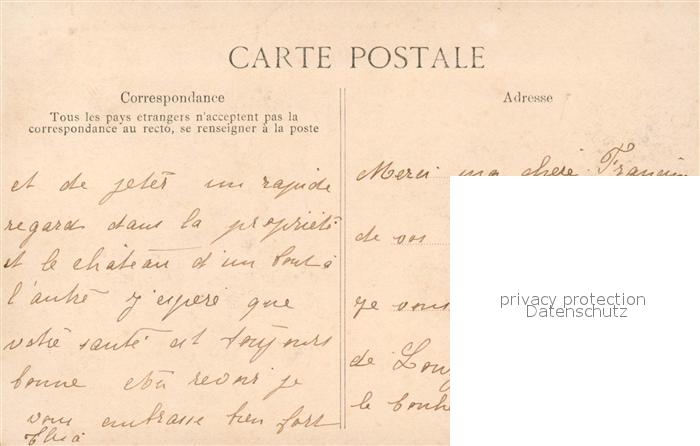 CARTE POSTALE
Correspondance
Tous les pays etrangers n'acceptent pas la
correspondance au recto, se renseigner à la poste
Adresse
et de jeter un rapide
regard dans la propriété
et le château d'un bout à
l'autre j'espère que
votre santé est toujours
bonne au revoir je
vous embrasse bien fort
Merci ma chère
de vos
je vous
de
le
privacy protection
Datenschutz